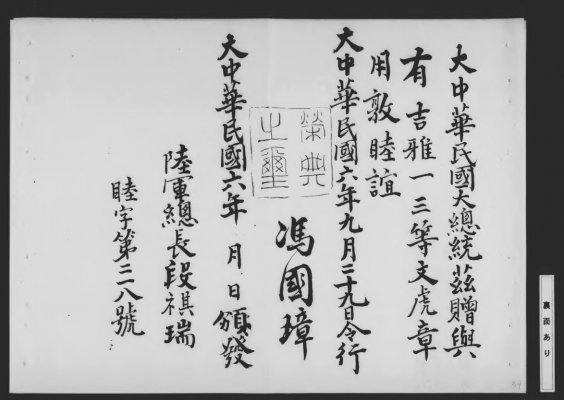 大中華民國大總統茲贈與
有吉雅一三等文虎章
用敦睦誼
大中華民國六年九月二十九日令行
榮典之璽
馮國璋
大中華民國六年 月 日頒發
陸軍總長段祺瑞
睦字第三一八號
裏面あり